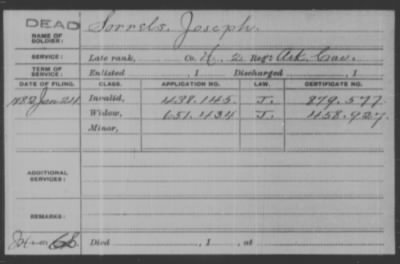 DEAD
NAME OF SOLDIER: Sorrels, Joseph.
SERVICE: Late rank, Co. K, 2 Reg't Ark. Cav.
TERM OF SERVICE: Enlisted , 1 Discharged , 1
DATE OF FILING. CLASS. APPLICATION NO. LAW. CERTIFICATE NO.
1882 Jan 24 Invalid, 438.145 J. 879.577
Widow, 651.434 J. 458.927
Minor,
ADDITIONAL SERVICES:
REMARKS:
Died , 1 , at